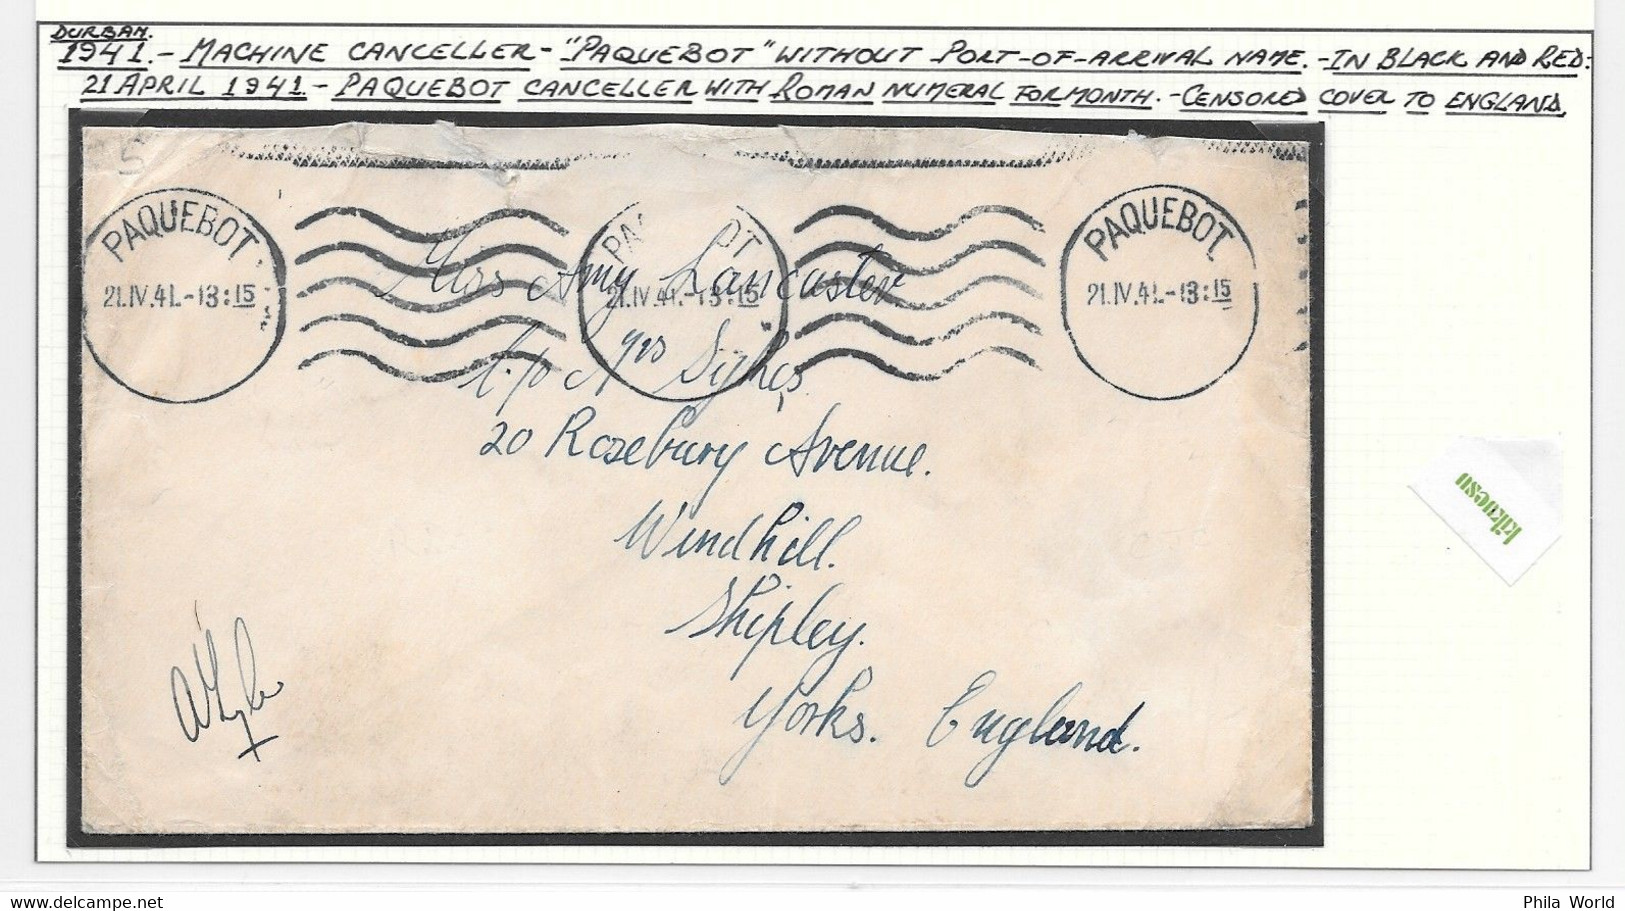 DURBAN.
1941. - MACHINE CANCELLER - "PAQUEBOT" WITHOUT PORT-OF-ARRIVAL NAME. - IN BLACK AND RED:
21 APRIL 1941. - PAQUEBOT CANCELLER WITH ROMAN NUMERAL FOR MONTH. - CENSORED COVER TO ENGLAND.
5
PAQUEBOT
21.IV.41.-13:15
PAQUEBOT
21.IV.41.-13:15
PAQUEBOT
21.IV.41.-13:15
Miss Amy Lancaster
c/o Mrs Sykes
20 Rosebury Avenue.
Windhill.
Shipley.
Yorks. England.
kikuesu
Phila World